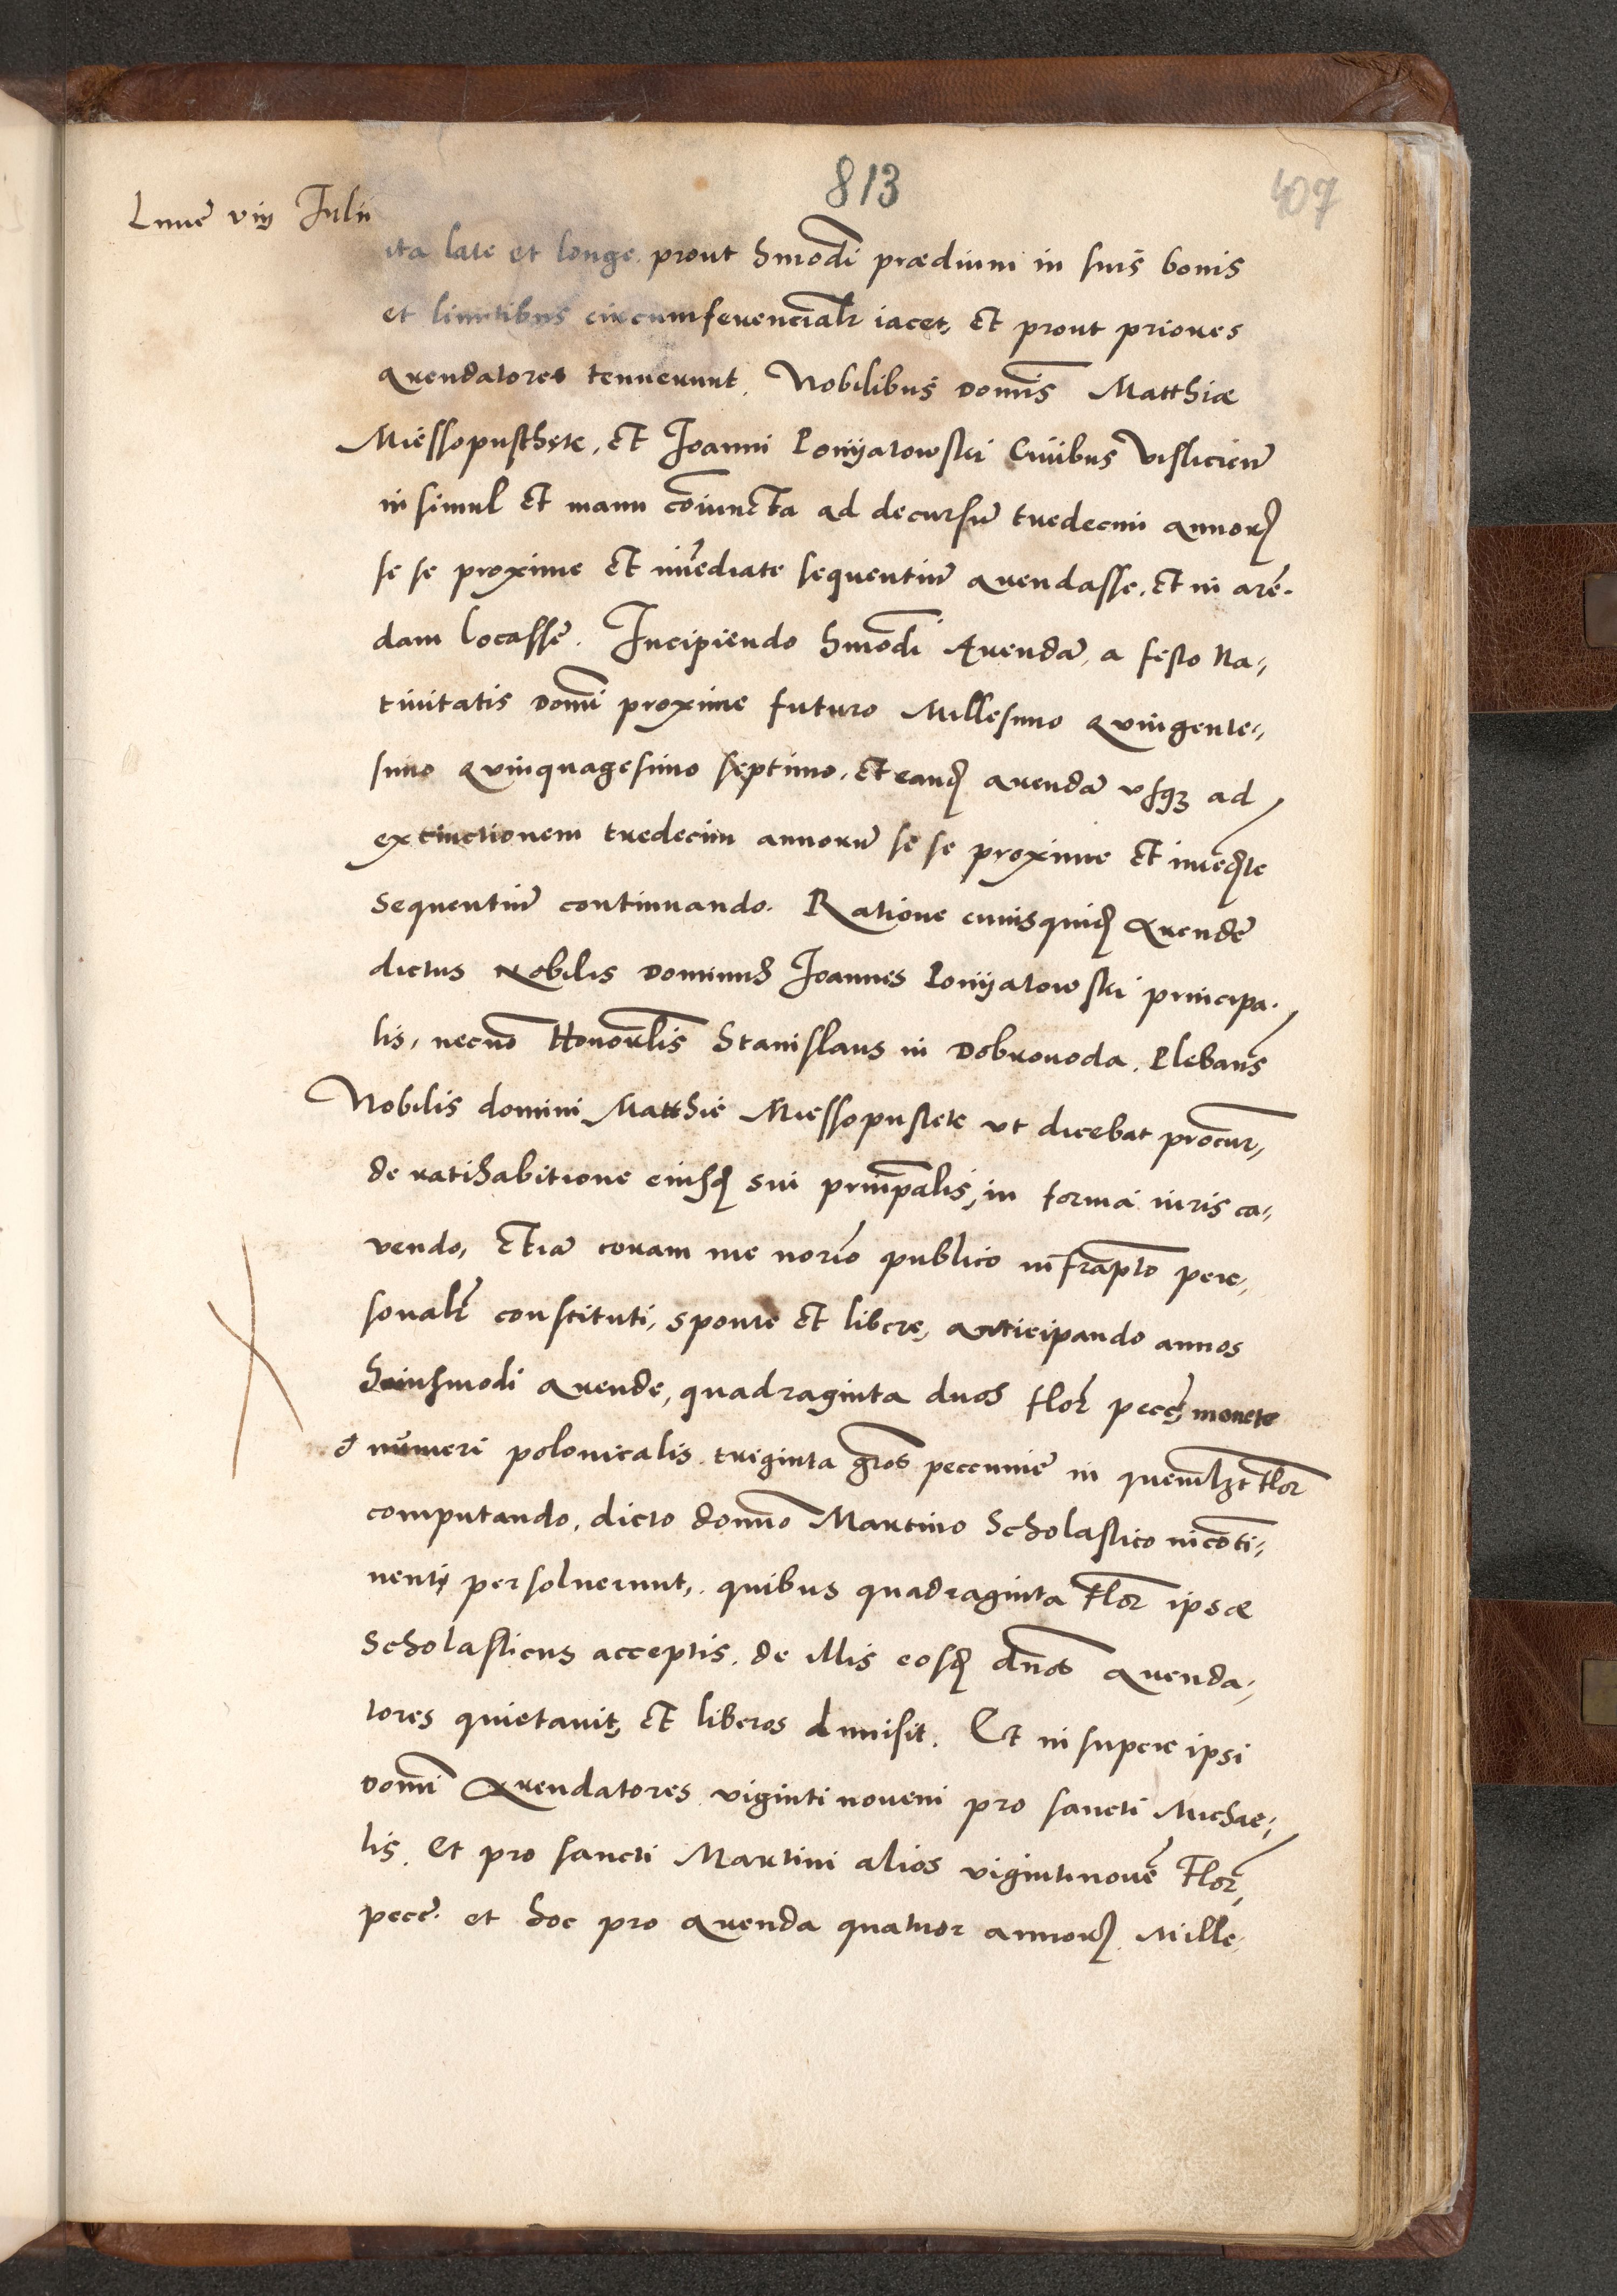 813
407
Lune viij Julii
ita late et longe prout hmodi prædium in suis bonis
et limitibus circumferencialr iacet, et prout priores
arendatores tenuerunt. Nobilibus domis Matthiæ
Miessopusthete, et Joanni Ponijatowski Ciuibus Vislicien̄
insimul et manu cōiuncta ad decursū tredecim annorꝝ
se se proxime et im̄ediate sequentiū arendasse, et in arē-
dam locasse. Incipiendo hmōdi Arendā, a festo Na-
tiuitatis domi proxime futuro Millesimo quingente-
simo quinquagesimo septimo, et eandꝫ arendā usqꝫ ad
extinctionem tredecim annorū se se proxime et immedꝫte
sequentiū continuando. Ratione cuiusquidꝫ Arendē
dictus Nobilis Dominus Joannes Ponijatowski principa-
lis, necno Honorlis Stanislaus in Dobrouoda Plebanˢ
Nobilis domini Matthiē Miessopustete ut dicebat procur,
de ratihabitione eiusdꝫ sui prinpalis, in forma iuris ca-
uendo, Etiā coram me norio publico infrapto per-
sonalr constituti, sponte et libere, anticipando annos
huiusmodi arende, quadraginta duos flor pecc, monete
et numeri polonicalis triginta gros peccunie in quemlꝫt flor
computando, dicto domno Martino Scholastico incōti-
nenti persoluerunt, quibus quadraginta flor ipsæ
Scholasticus acceptis. de illis eosdꝫ dnos arenda-
tores quietauit, et liberos dimisit. Et insuper ipsi
domi Arendatores viginti nouem pro sancti Michae-
lis, et pro sancti Martini alios vigintinouē Flor,
pecc. et hoc pro arenda quatuor annorꝝ Mille-